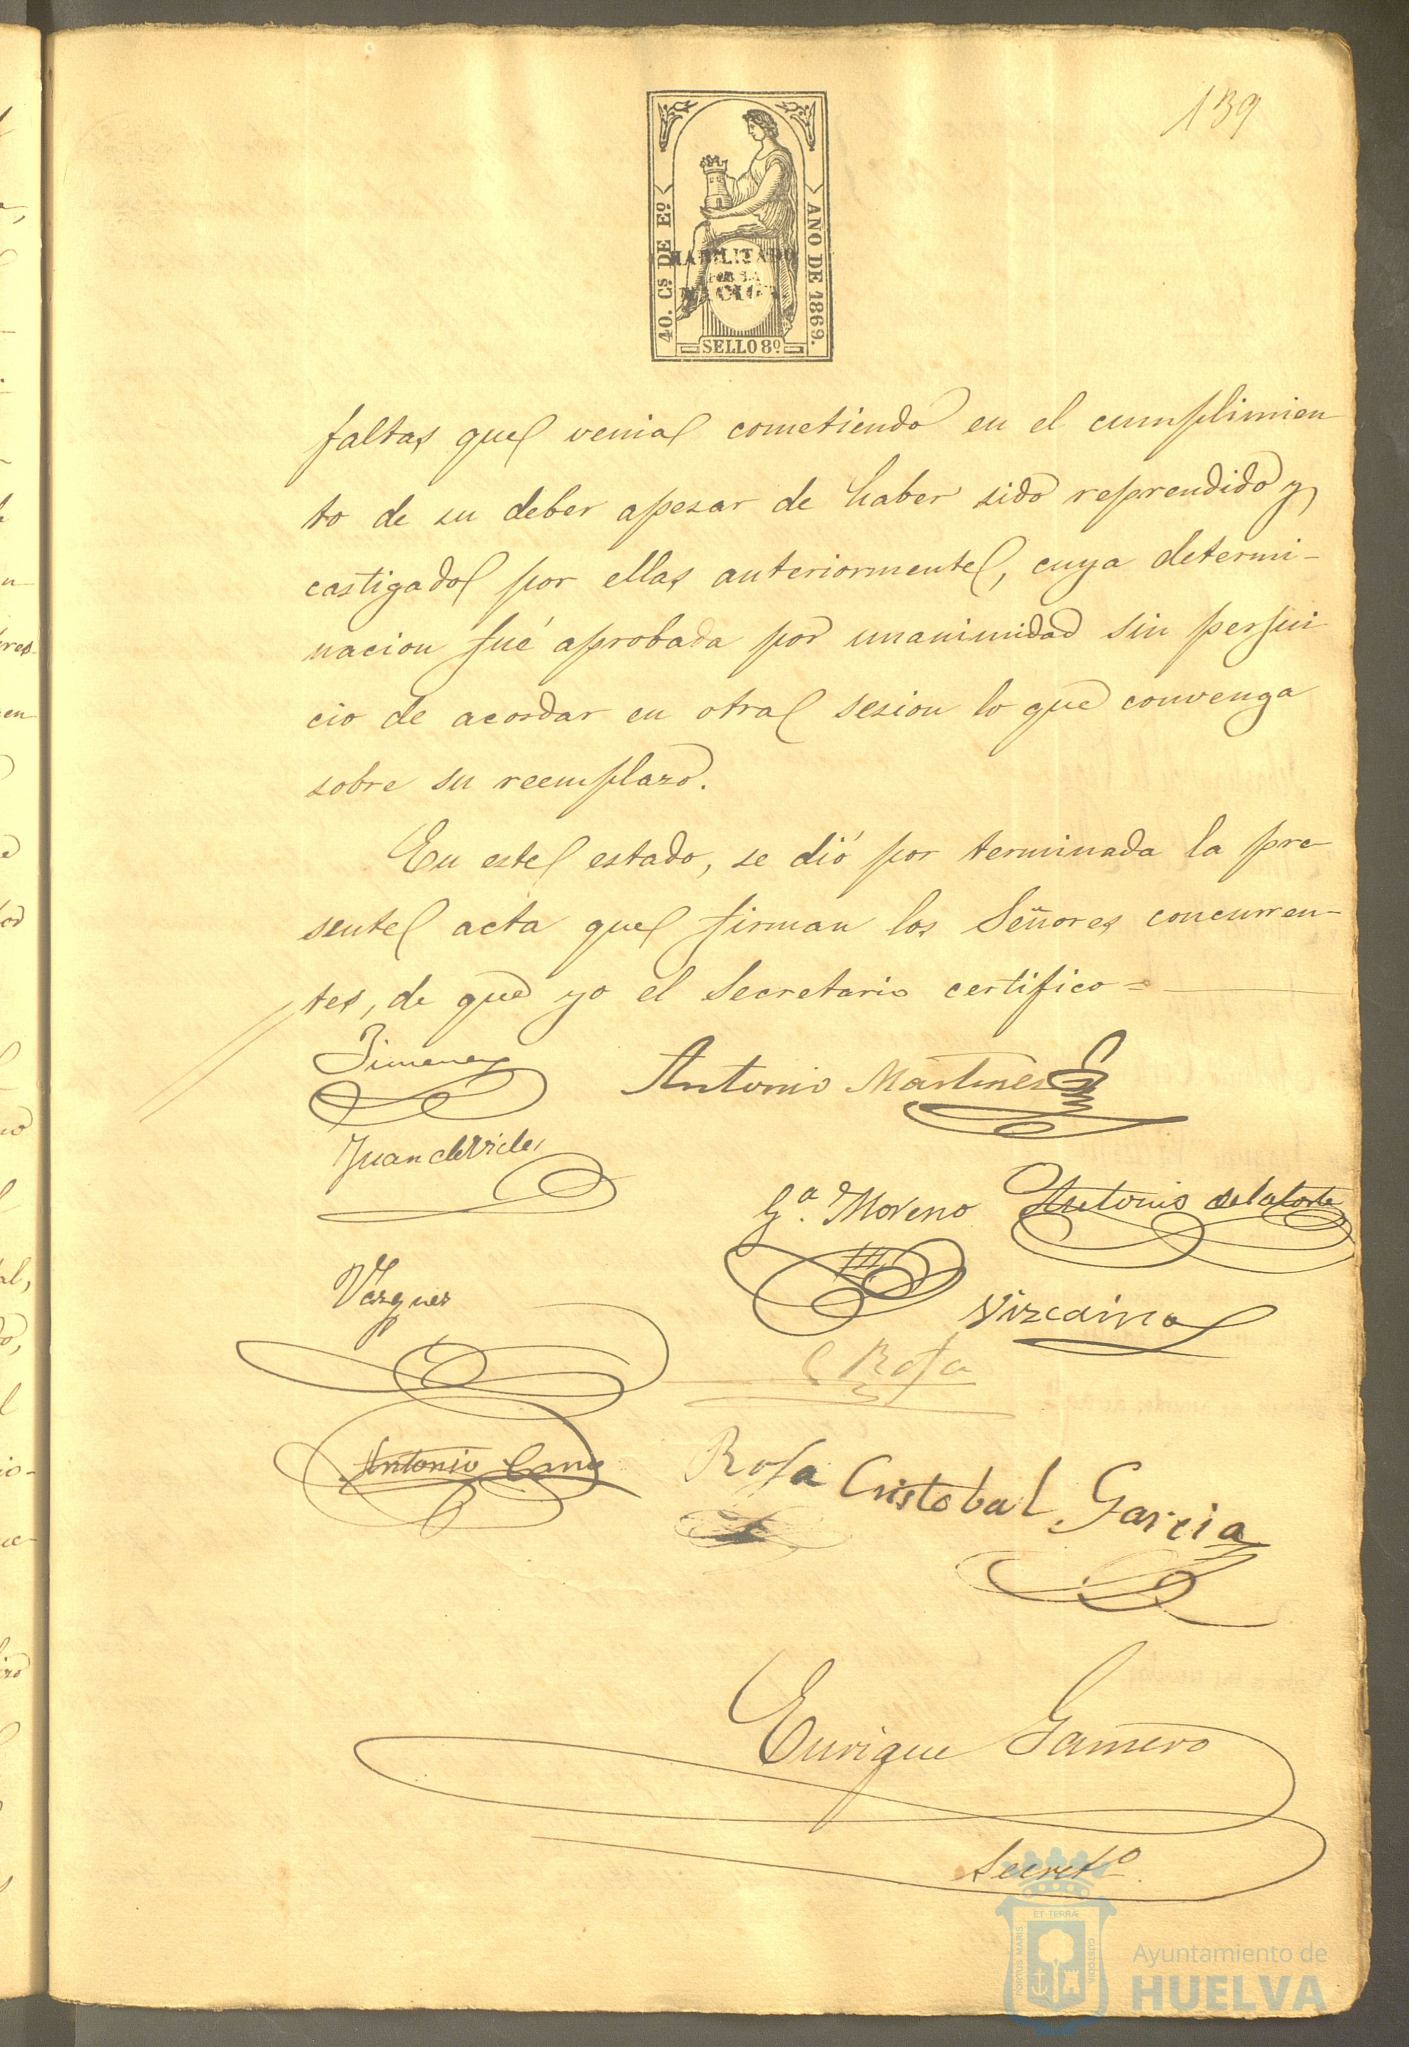 139
40. Cs DE Eo
AÑO DE 1869.
HABILITADO
POR LA
NACION
SELLO 8o
faltas que venia cometiendo en el cumplimien
to de su deber apesar de haber sido reprendido y
castigado por ellas anteriormente, cuya determi-
nacion fué aprobada por unanimidad sin perjui
cio de acordar en otra sesion lo que convenga
sobre su reemplazo.
En este estado, se dió por terminada la pre-
sente acta que firman los Señores concurren-
tes, de que yo el Secretario certifico =
Jimenez
Antonio Martinez
Juan de Vides
Ga. Moreno
Antonio de la Corte
Vazquez
Vizcaino
Rosa
Antonio Cano
Rosa
Cristobal Garcia
Enrique Gamero
Secreto
PORTUS MARIS
ET TERRÆ
CUSTODIA
Ayuntamiento de
HUELVA